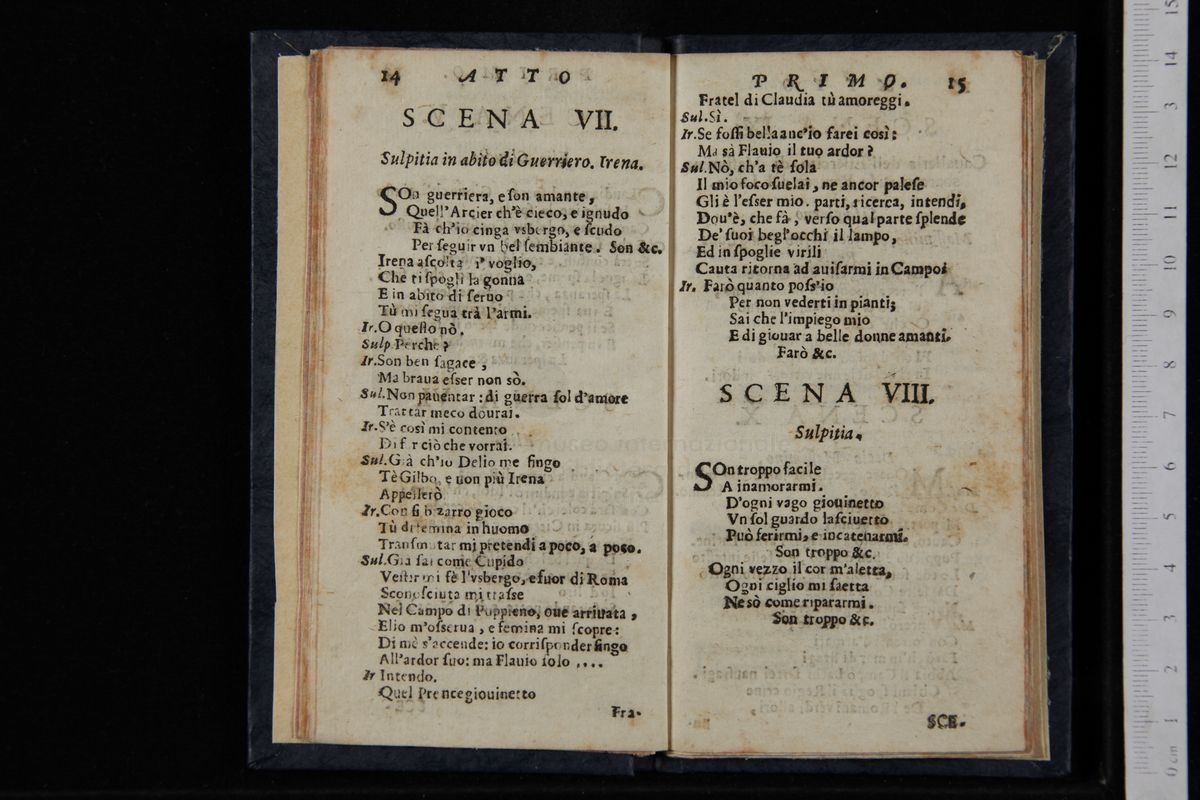 14 ATTO
SCENA VII.
Sulpitia in abito di Guerriero. Irena.
SOn guerriera, e son amante,
Quell'Arcier ch'è cieco, e ignudo
Fà ch'io cinga vsbergo, e scudo
Per seguir vn bel sembiante. Son &c.
Irena ascolta i' voglio,
Che ti spogli la gonna
E in abito di seruo
Tù mi segua trà l'armi.
Ir.O questo nò.
Sulp.Perche?
Ir.Son ben sagace,
Ma braua esser non sò.
Sul.Non pauentar: di guerra sol d'amore
Trattar meco dourai.
Ir.S'è così mi contento
Di far ciò che vorrai.
Sul.Già ch'io Delio me fingo
Tè Gilbo, e non più Irena
Appellerò
Ir.Con sì bizarro gioco
Tù di femina in huomo
Transmutar mi pretendi a poco, a poco.
Sul.Già sai come Cupido
Vestir mi fè l'vsbergo, e fuor di Roma
Sconosciuta mi trasse
Nel Campo di Puppieno, oue arriuata,
Elio m'osserua, e femina mi scopre:
Di mè s'accende: io corrisponder fingo
All'ardor suo: ma Flauio solo ....
Ir Intendo.
Quel Prence giouinetto
Fra-
PRIMO. 15
Fratel di Claudia tù amoreggi.
Sul.Sì.
Ir.Se fossi bella anc'io farei così:
Ma sà Flauio il tuo ardor?
Sul.Nò, ch'a tè sola
Il mio foco suelai, ne ancor palese
Gli è l'esser mio. parti, ricerca, intendi,
Dou'è, che fà, verso qual parte splende
De' suoi begl'occhi il lampo,
Ed in spoglie virili
Cauta ritorna ad auisarmi in Campo:
Ir. Farò quanto poss'io
Per non vederti in pianti;
Sai che l'impiego mio
E di giouar a belle donne amanti.
Farò &c.
SCENA VIII.
Sulpitia.
SOn troppo facile
A inamorarmi.
D'ogni vago giouinetto
Vn sol guardo lasciuetto
Può ferirmi, e incatenarmi.
Son troppo &c.
Ogni vezzo il cor m'aletta,
Ogni ciglio mi saetta
Ne sò come ripararmi.
Son troppo &c.
SCE-